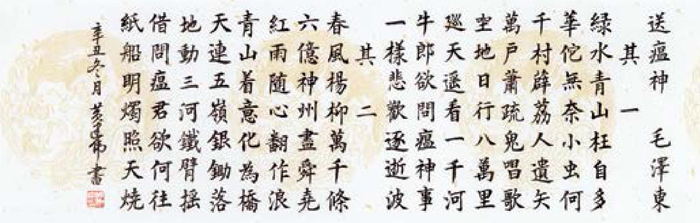 送瘟神 毛澤東
其一
綠水青山枉自多
華佗無奈小虫何
千村薜荔人遺矢
萬戶蕭疏鬼唱歌
空地日行八萬里
巡天遥看一千河
牛郎欲問瘟神事
一樣悲歡逐逝波
其二
春風楊柳萬千條
六億神州盡舜堯
紅雨隨心翻作浪
青山着意化為橋
天連五嶺銀鋤落
地動三河鐵臂摇
借問瘟君欲何往
紙船明燭照天燒
辛丑冬月 黄 偉 書